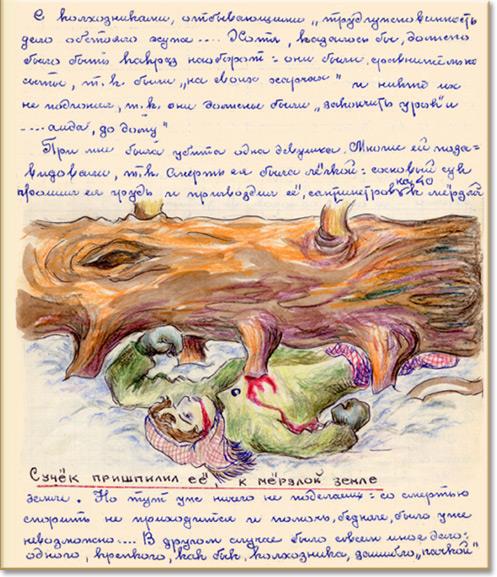 С колхозниками, отбывающими „трудгужповинность
дело обстояло хуже .... Хотя, казалось бы, должно
было быть как раз наоборот: они были, сравнительно
сыты, т.к. были „на своих харчах" и никто их
не подгонял, т.к. они должны были „закончить урок" и
.... айда, до дому"
При мне была убита одна девушка. Многие ей поза-
видовали, т.к. смерть ея была лёгкой: сосновый сук
прошил ея грудь и пригвоздил её, сантиметров на 40 к мёрзлой
Сучёк пришпилил её, к мёрзлой земле
земле. Но тут уже ничего не поделаешь: со смертью
спорить не приходится и помочь, бедняге, было уже
невозможно .... В другом случае было совсем иное дело:
одного, крепкого, как бык, колхозника, зашибло „пачкой"